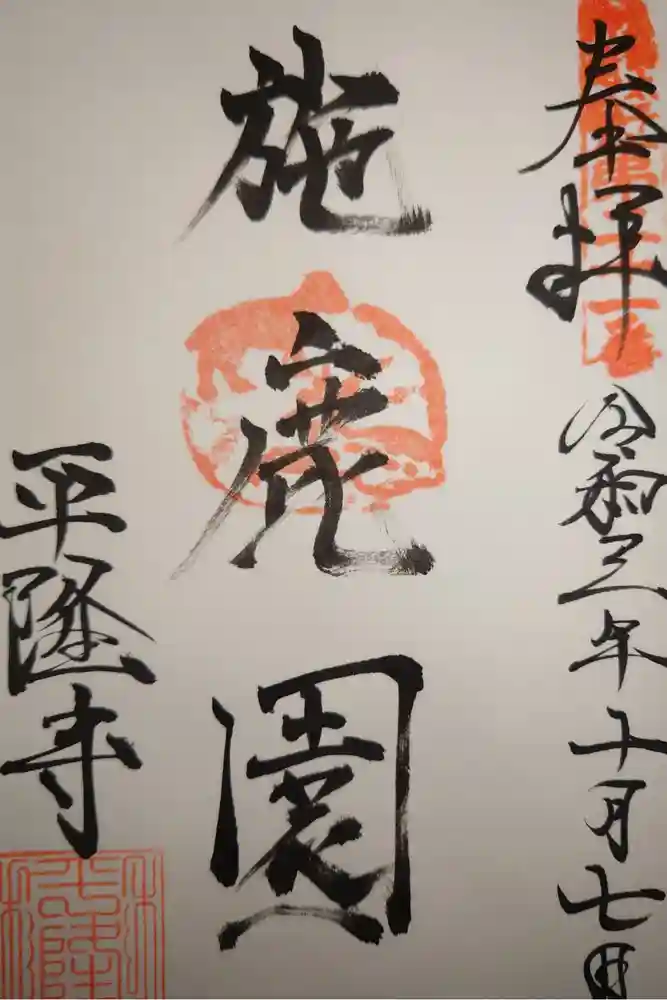 奉拝 令和三年十月七日
施鹿園
平隆寺